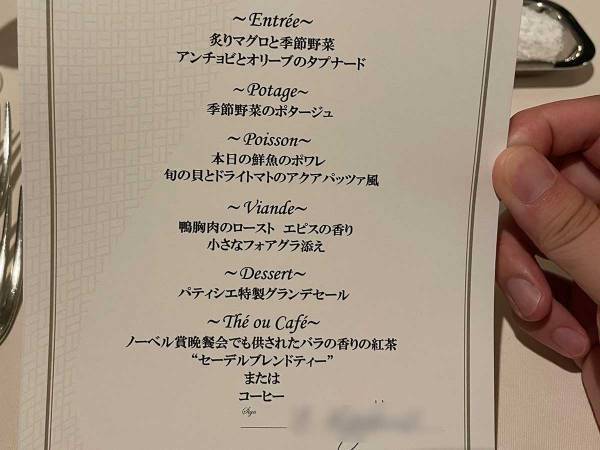 ~Entrée~
炙りマグロと季節野菜
アンチョビとオリーブのタプナード
~Potage~
季節野菜のポタージュ
~Poisson~
本日の鮮魚のポワレ
旬の貝とドライトマトのアクアパッツァ風
~Viande~
鴨胸肉のロースト エピスの香り
小さなフォアグラ添え
~Dessert~
パティシエ特製グランデセール
~Thé ou Café~
ノーベル賞晩餐会でも供されたバラの香りの紅茶
“セーデルブレンドティー”
または
コーヒー
Sign